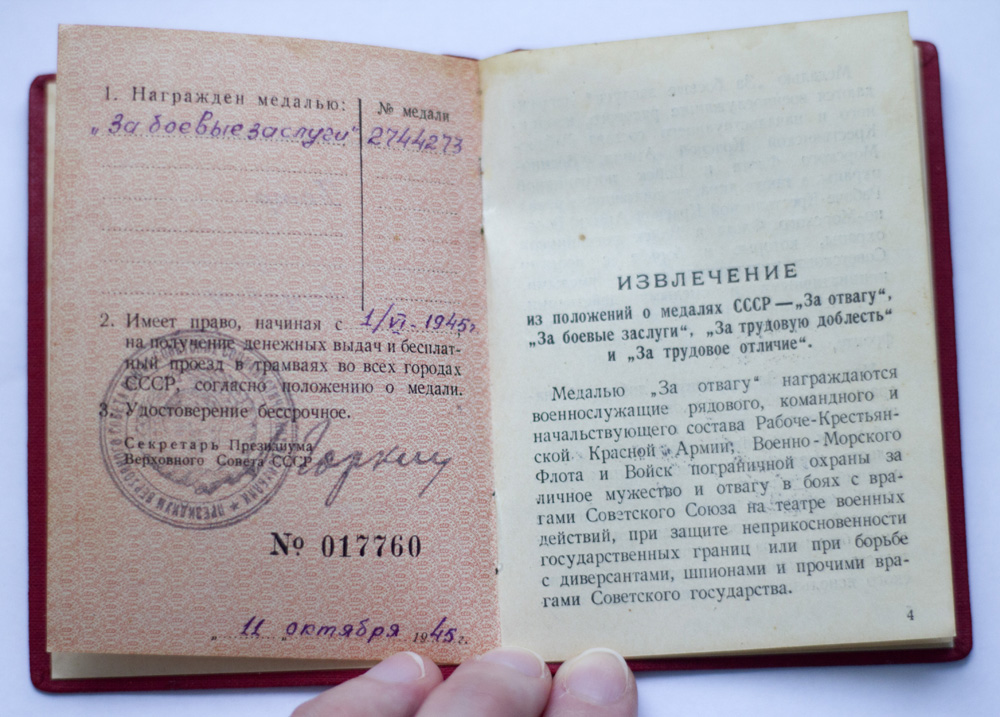 1. Награжден медалью:
№ медали
„За боевые заслуги“
2744273
2. Имеет право, начиная с 1/VI-1945г.
на получение денежных выдач и бесплат-
ный проезд в трамваях во всех городах
СССР, согласно положению о медали.
3. Удостоверение бессрочное.
Секретарь Президиума
Верховного Совета СССР
Горкин
№ 017760
„ 11 „ октября 1945 г.
ИЗВЛЕЧЕНИЕ
из положений о медалях СССР—„За отвагу“,
„За боевые заслуги“, „За трудовую доблесть“
и „За трудовое отличие“.
Медалью „За отвагу“ награждаются
военнослужащие рядового, командного и
начальствующего состава Рабоче-Крестьян-
ской Красной Армии, Военно-Морского
Флота и Войск пограничной охраны за
личное мужество и отвагу в боях с вра-
гами Советского Союза на театре военных
действий, при защите неприкосновенности
государственных границ или при борьбе
с диверсантами, шпионами и прочими вра-
гами Советского государства.
4